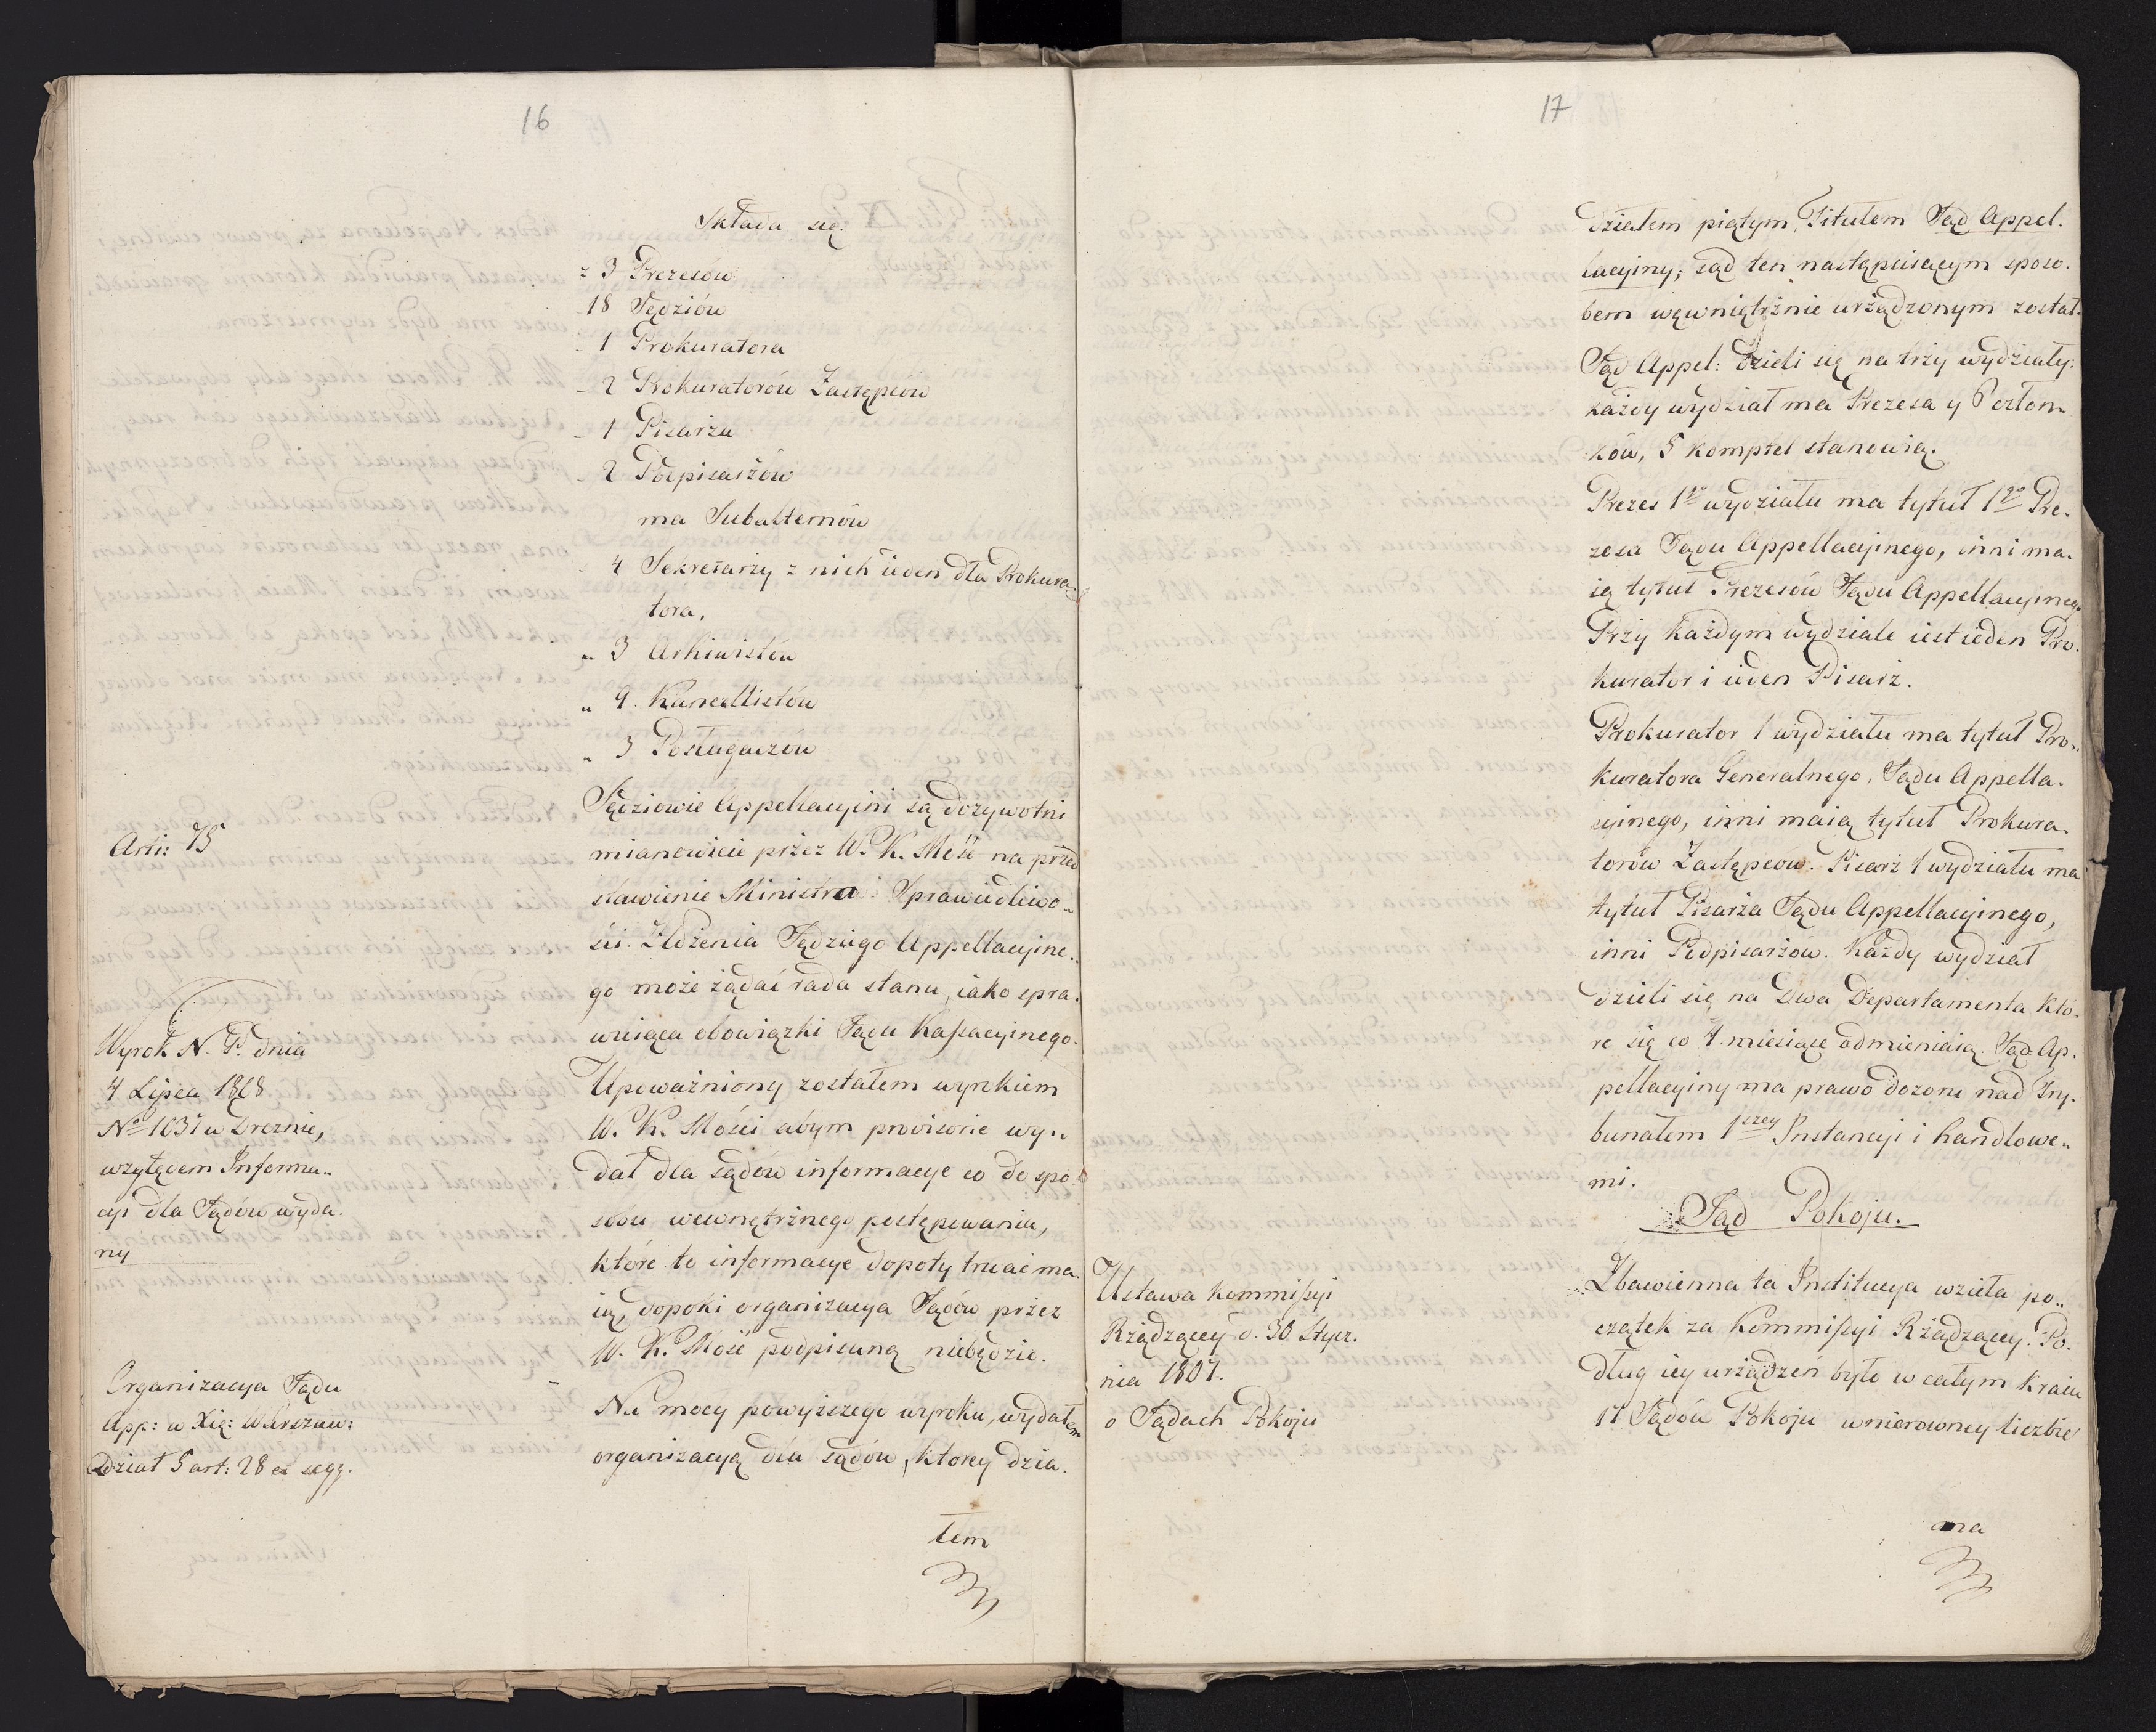 16
Składa się:
z 3 Prezesów
- 18 Sędziów
- 1 Prokuratora
- 2 Prokuratorów Zastępców
- 1 Pisarza
- 2 Podpisarzów
ma Subalternów
- 4 Sekretarzy z nich ieden dla Prokura-
tora,
" 3 Arhiwistów
" 4. Kancellistów
" 3 Posługaczów
Arti: 75
Sędziowie Appellacyini są dożywotni
mianowicie przez W. K. Mość na przed
stawienie Ministra Sprawiedliwo-
ści. Złożenia Sędziego Appellacyine-
go może żądać rada stanu, iako spra-
wuiąca obowiązki Sądu Kassacyinego.
Wyrok N. P. dnia
4 Lipca 1808
No 1031 w Dreznie,
względem Informa-
cyi dla Sądów wyda-
ny
Upoważniony zostałem wyrokiem
W. K. Mości abym provisorie wy-
dał dla sądów informacye co do spo-
sobu wewnętrznego postępowania,
które to informacye dopoty trwać ma-
ią, dopoki organizacya Sądów przez
W. K. Mość podpisaną niebędzie.
Organizacya Sądu
App: w Xię: Warszaw:
Dział 5 art: 28 et seqq.
Na mocy powyższego wyroku, wydałem
organizacyą dla sądów, ktorey dzia-
łem
17
działem piątym, Titułem Sąd Appel-
lacyiny, sąd ten następuiącym sposo-
bem wewniętrznie urządzonym został.
Sąd Appel: dzieli się na trzy wydziały:
każdy wydział ma Prezesa y 6 członk-
ków, 5 komplet stanowią.
Prezes 1go wydziału ma tytuł 1go Pre-
zesa Sądu Appellacyinego, inni ma-
ią tytuł Prezesów Sądu Appellacyinego
Przy każdym wydziale iest ieden Pro-
kurator i ieden Pisarz.
Prokurator 1 wydziału ma tytuł Pro-
kuratora Generalnego, Sądu Appella-
cyinego, inni maią tytuł Prokura-
torów Zastępców. Pisarz 1 wydziału ma
tytuł Pisarza Sądu Appellacyinego,
inni Podpisarzow. Każdy wydział
dzieli się na Dwa Departamenta któ-
re się co 4 miesiące odmieniaią. Sąd Ap-
pellacyiny ma prawo dozoru nad Try-
bunałem 1szey Instancyi i handlowe-
mi.
Sąd Pokoju.
Ustawa Kommissyi
Rządzącey d. 30. Stycz-
nia 1807.
o Sądach Pokoju
Zbawienna ta Institucya wzieła po-
czątek za Kommissyi Rządzącey. Po-
dług iey urządzeń było w całym Kraiu
17 Sądów Pokoju w nierowney liczbie
ma